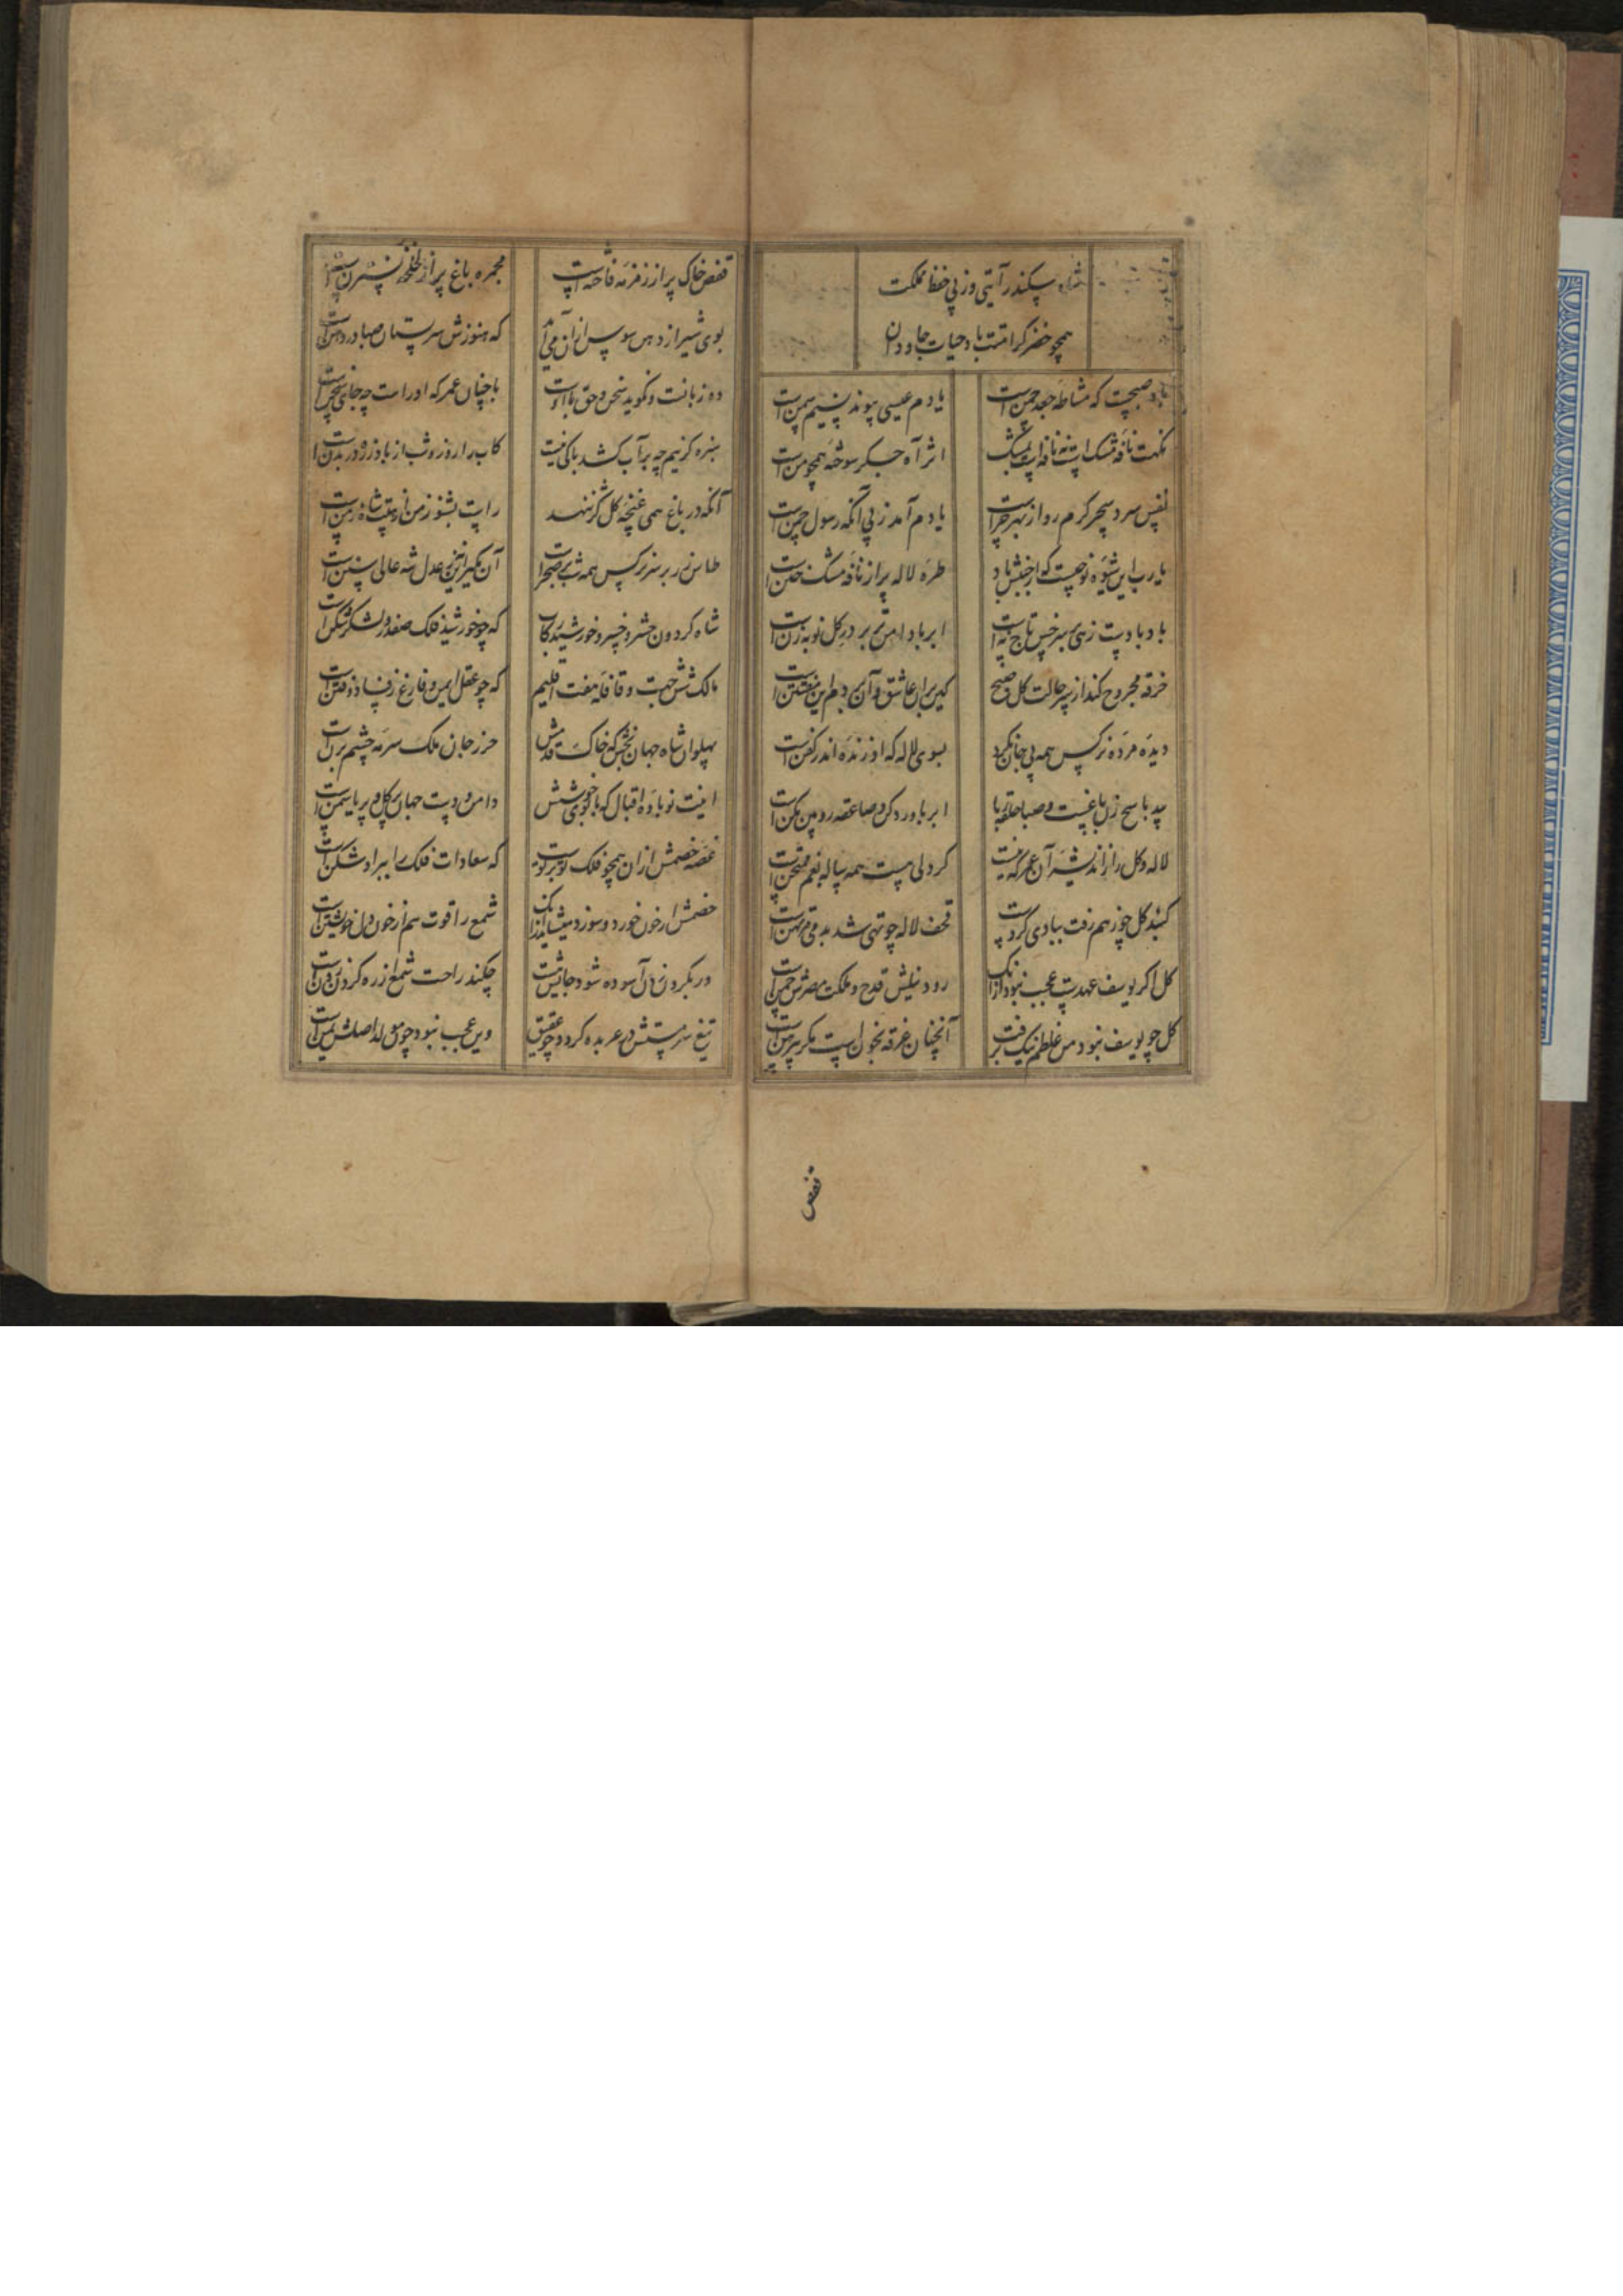 شاه سکندر آیتی وز پی حفظ مملکت
همچو خضر کرامتت باد حیات جاودان
باد صبحست که مشاطه جعد چمنست
یا دم عیسی پیوند نسیم سمنست
نکهت نافه مشک است نه نافه است نه مشک
اثر آه جگر سوخته همچو منست
نفس سرد سحر گرم رو از بهر چراست
یا دم آمد ز پی آنکه رسول چمنست
یا رب این شیوه نو چیست که از جنبش باد
طره لاله پر از نافه مشک ختنست
باد بادست زهی سر خس تاج
ابر با دامن تر بر در گل نوبه زنست
خرقه مجروح کند از سر حالت گل و صبح
کین بران عاشق و آن بر دم این مفتتنست
دیده مرده نرگس همه بی جان نگرد
سوی لاله که او زنده اندر کفنست
باغیست و صبا حلقه ربا
ابر ناورد کن و صاعقه روبین مکنست
لاله دل را ز اندیشه آن عمر که نیست
کر دلی است همه ساله بغم ممتحنست
گنبد گل چو ز هم رفت ببادی گروست
قحف لاله چو تهی شد بدمی مرتهنست
گل اگر یوسف عهدست عجب نبود از آنک
رود نیلش قدح و ملکت مصرش چمنست
گل چو یوسف نبود من غلطم نیک نرفت
آنچنان غرقه بخون است مگر پیرهنست
قفص
قفص خاک پر از زمزمه فاخته است
مجمره باغ پر از لخلخه نسترنست
بوی شیر از دهن سوسن از ان می آید
که هنوزش سر پستان صبا در دهنست
ده زبانست و نگوید سخن و حق با اوست
با چنان عمر که او راست چه جای سخنست
سبزه گر نیم چه بر آب کشد باکی نیست
کاب را روز و شب از باد زره در بدنست
آنکه در باغ همی غنچه گل گرز نهد
راست بشنو ز من از هیبت شاه زمنست
طاس زر بر سر نرگس همه شب بر صحراست
آن نگیر از نزنی عدل شه عالی سننست
شاه گردون حشر و خسرو خورشید رکاب
که چو خورشید فلک صفدر و لشکر شکنست
مالک شش جهت و قافله هفت اقلیم
که چو عقل ایمن و فارغ ز فساد و فتنست
پهلوان شاه جهان بخش که خاک قدمش
حرز جان ملک سرمه چشم پرنست
اینت نوباده اقبال که با خوی خوشش
دامن دوست جهان پر گل و پر یاسمنست
غصه خصمش از ان همچو فلک تو بر توست
که سعادات فلک را ببر او شکنست
خصمش ار خون خورد و سوزد میشاید از آنک
شمع را قوت هم از خون دل خویشتنست
ور بگردن زدن آسوده شود جانش
چکند راحت شمع از ره گردن زدنست
تیغ سرمستش در عربده گردد چو عقیق
وین عجب نبود چون مولد اصلش یمنست